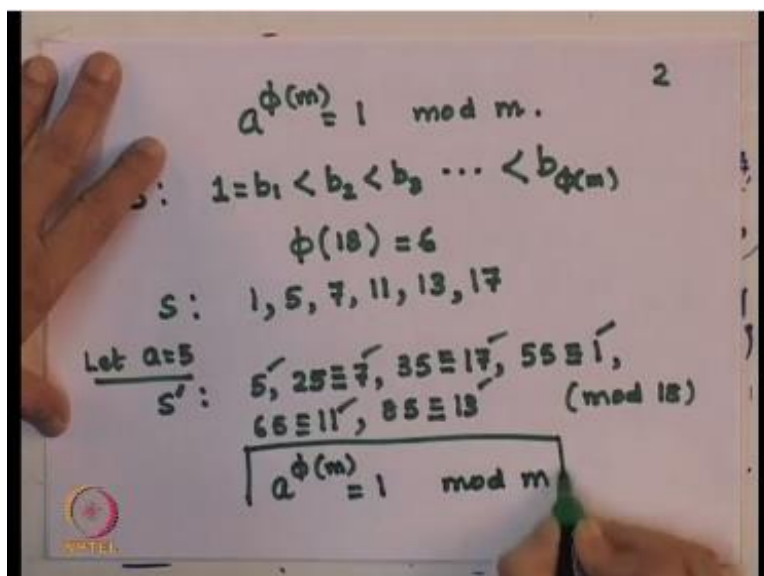 2
a^ϕ(m) = 1 mod m.
S: 1=b₁ < b₂ < b₃ ⋯ < b_ϕ(m)
ϕ(18) = 6
S: 1, 5, 7, 11, 13, 17
Let a=5
S': 5✓, 25≡7✓, 35≡17✓, 55≡1✓,
65≡11✓, 85≡13✓ (mod 18)
a^ϕ(m) = 1 mod m
NPTEL